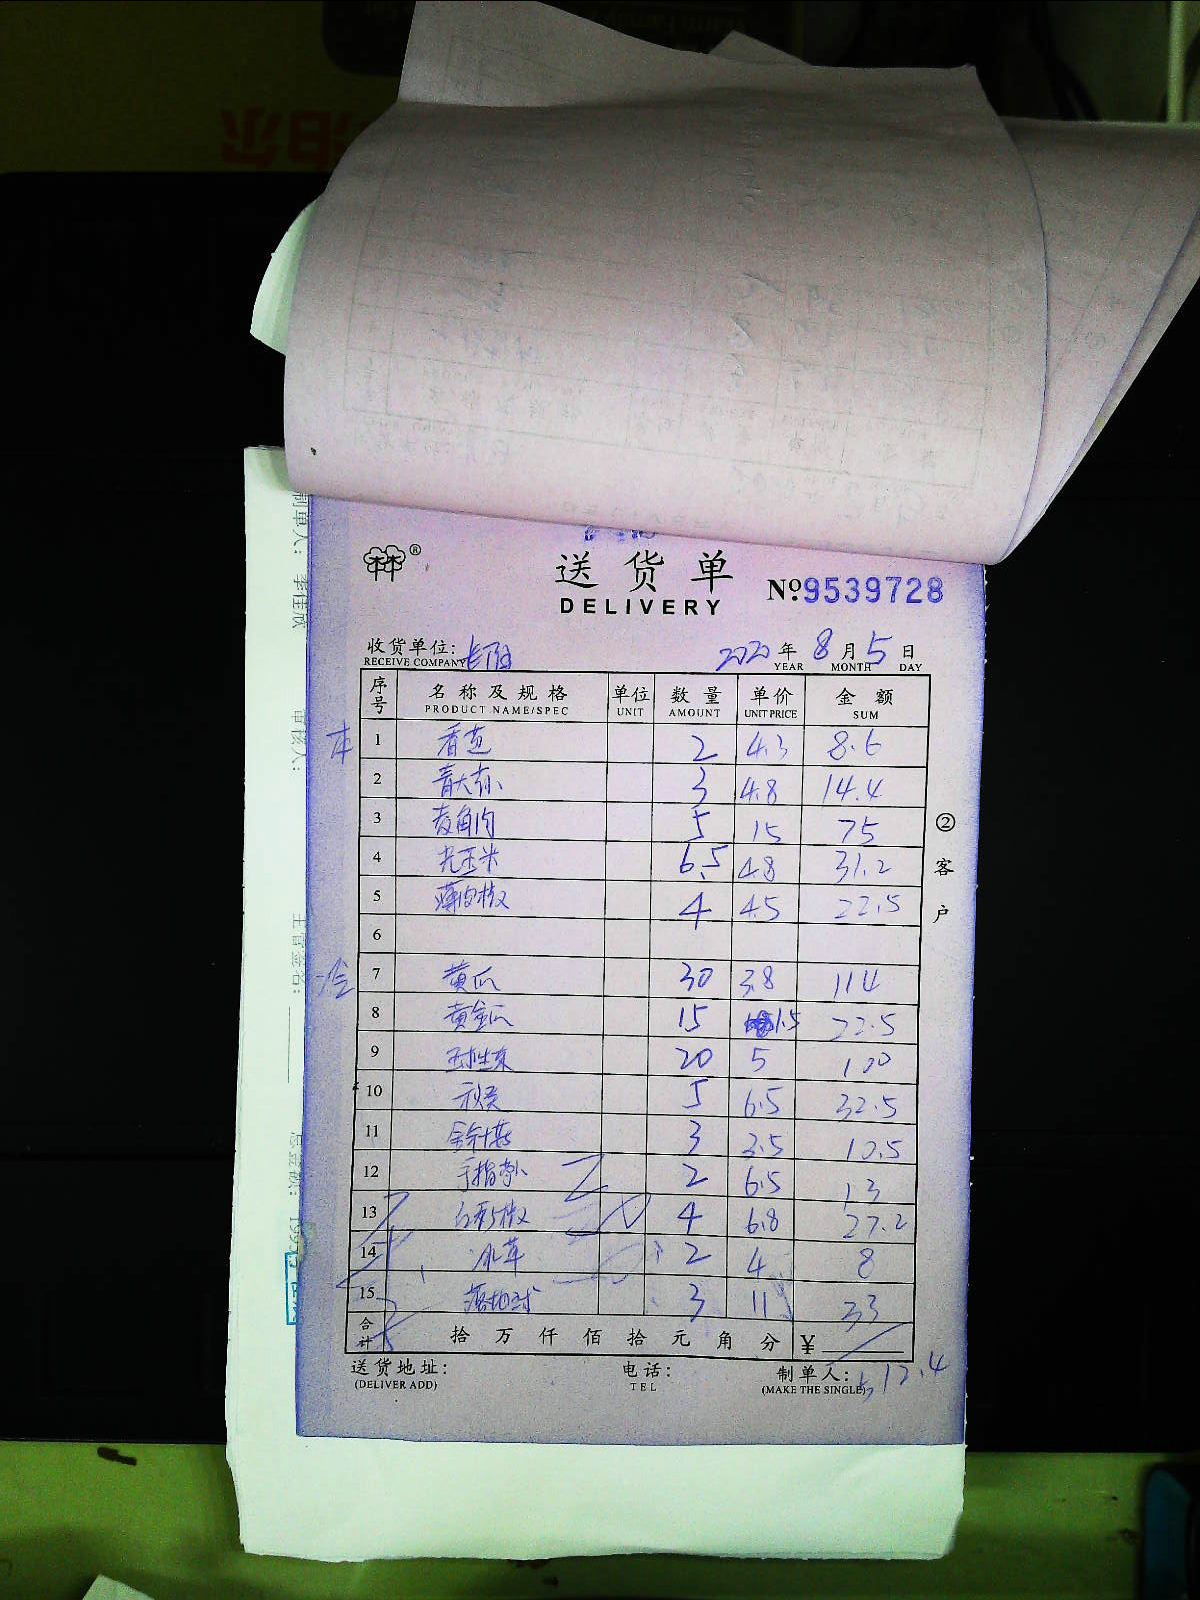 送货单
DELIVERY
№ 9539728
收货单位:
RECEIVE COMPANY
2020 年 8 月 5 日
YEAR MONTH DAY
序号 名称及规格 单位 数量 单价 金额
PRODUCT NAME/SPEC UNIT AMOUNT UNIT PRICE SUM
本 1 香芒 2 4.3 8.6
2 青大 3 4.8 14.4
3 5 15 75
4 光玉米 6.5 4.8 31.2
5 薄皮椒 4 4.5 22.5
6
7 黄瓜 30 3.8 114
8 黄金瓜 15 1.5 22.5
9 球生菜 20 5 100
10 秋葵 5 6.5 32.5
11 金针菇 3 3.5 10.5
12 手指 2 6.5 13
13 椒 4 6.8 27.2
14 冰草 2 4 8
15 3 11 33
合计 拾 万 仟 佰 拾 元 角 分 ¥
512.4
送货地址: 电话: 制单人:
(DELIVER ADD) TEL (MAKE THE SINGLE)
②客户
制单人: 李佳欣
审核人:
主管签名:
总金额: